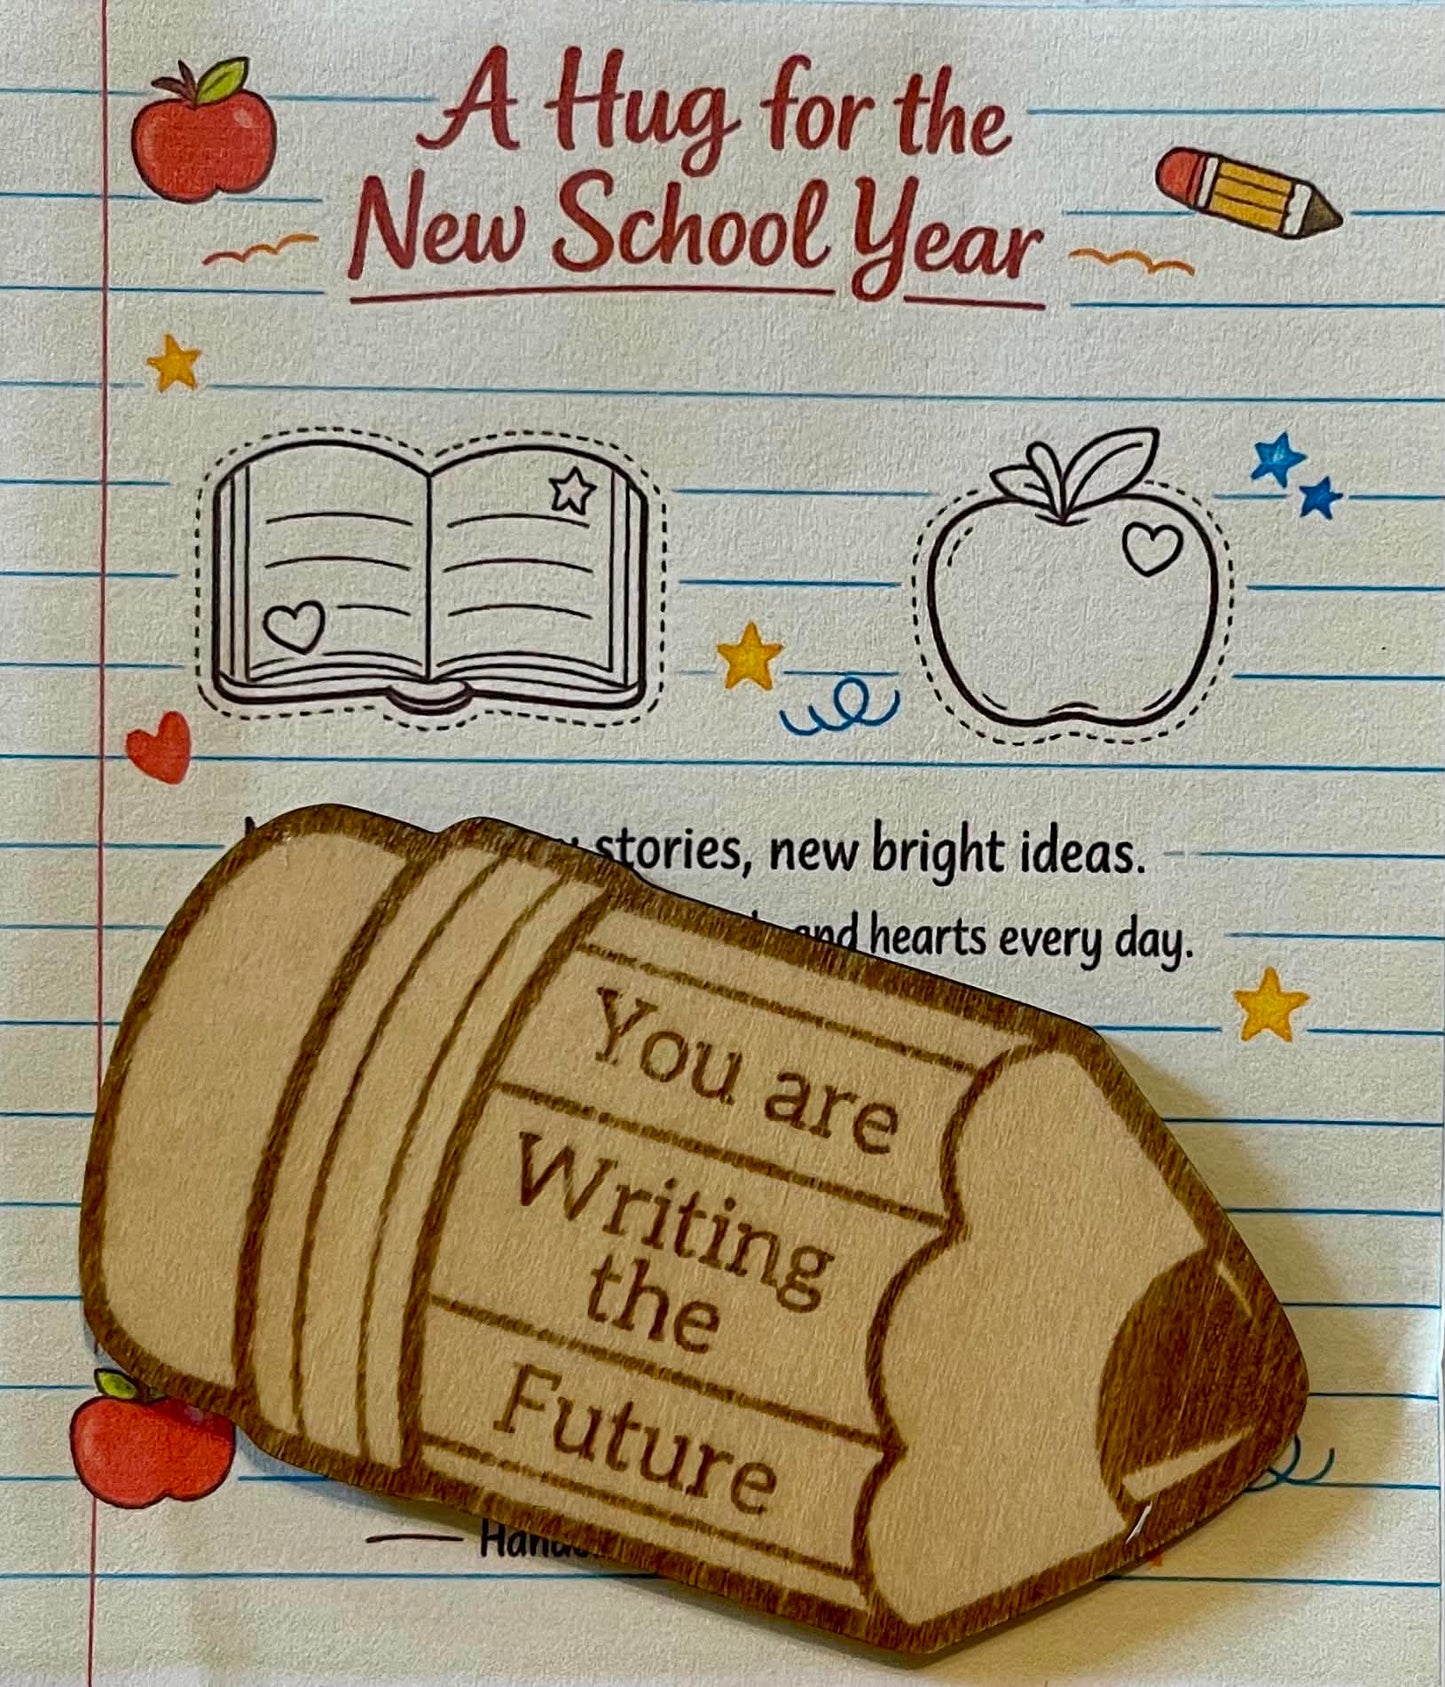 A Hug for the
New School Year
stories, new bright ideas.
and hearts every day.
You are
Writing
the
Future